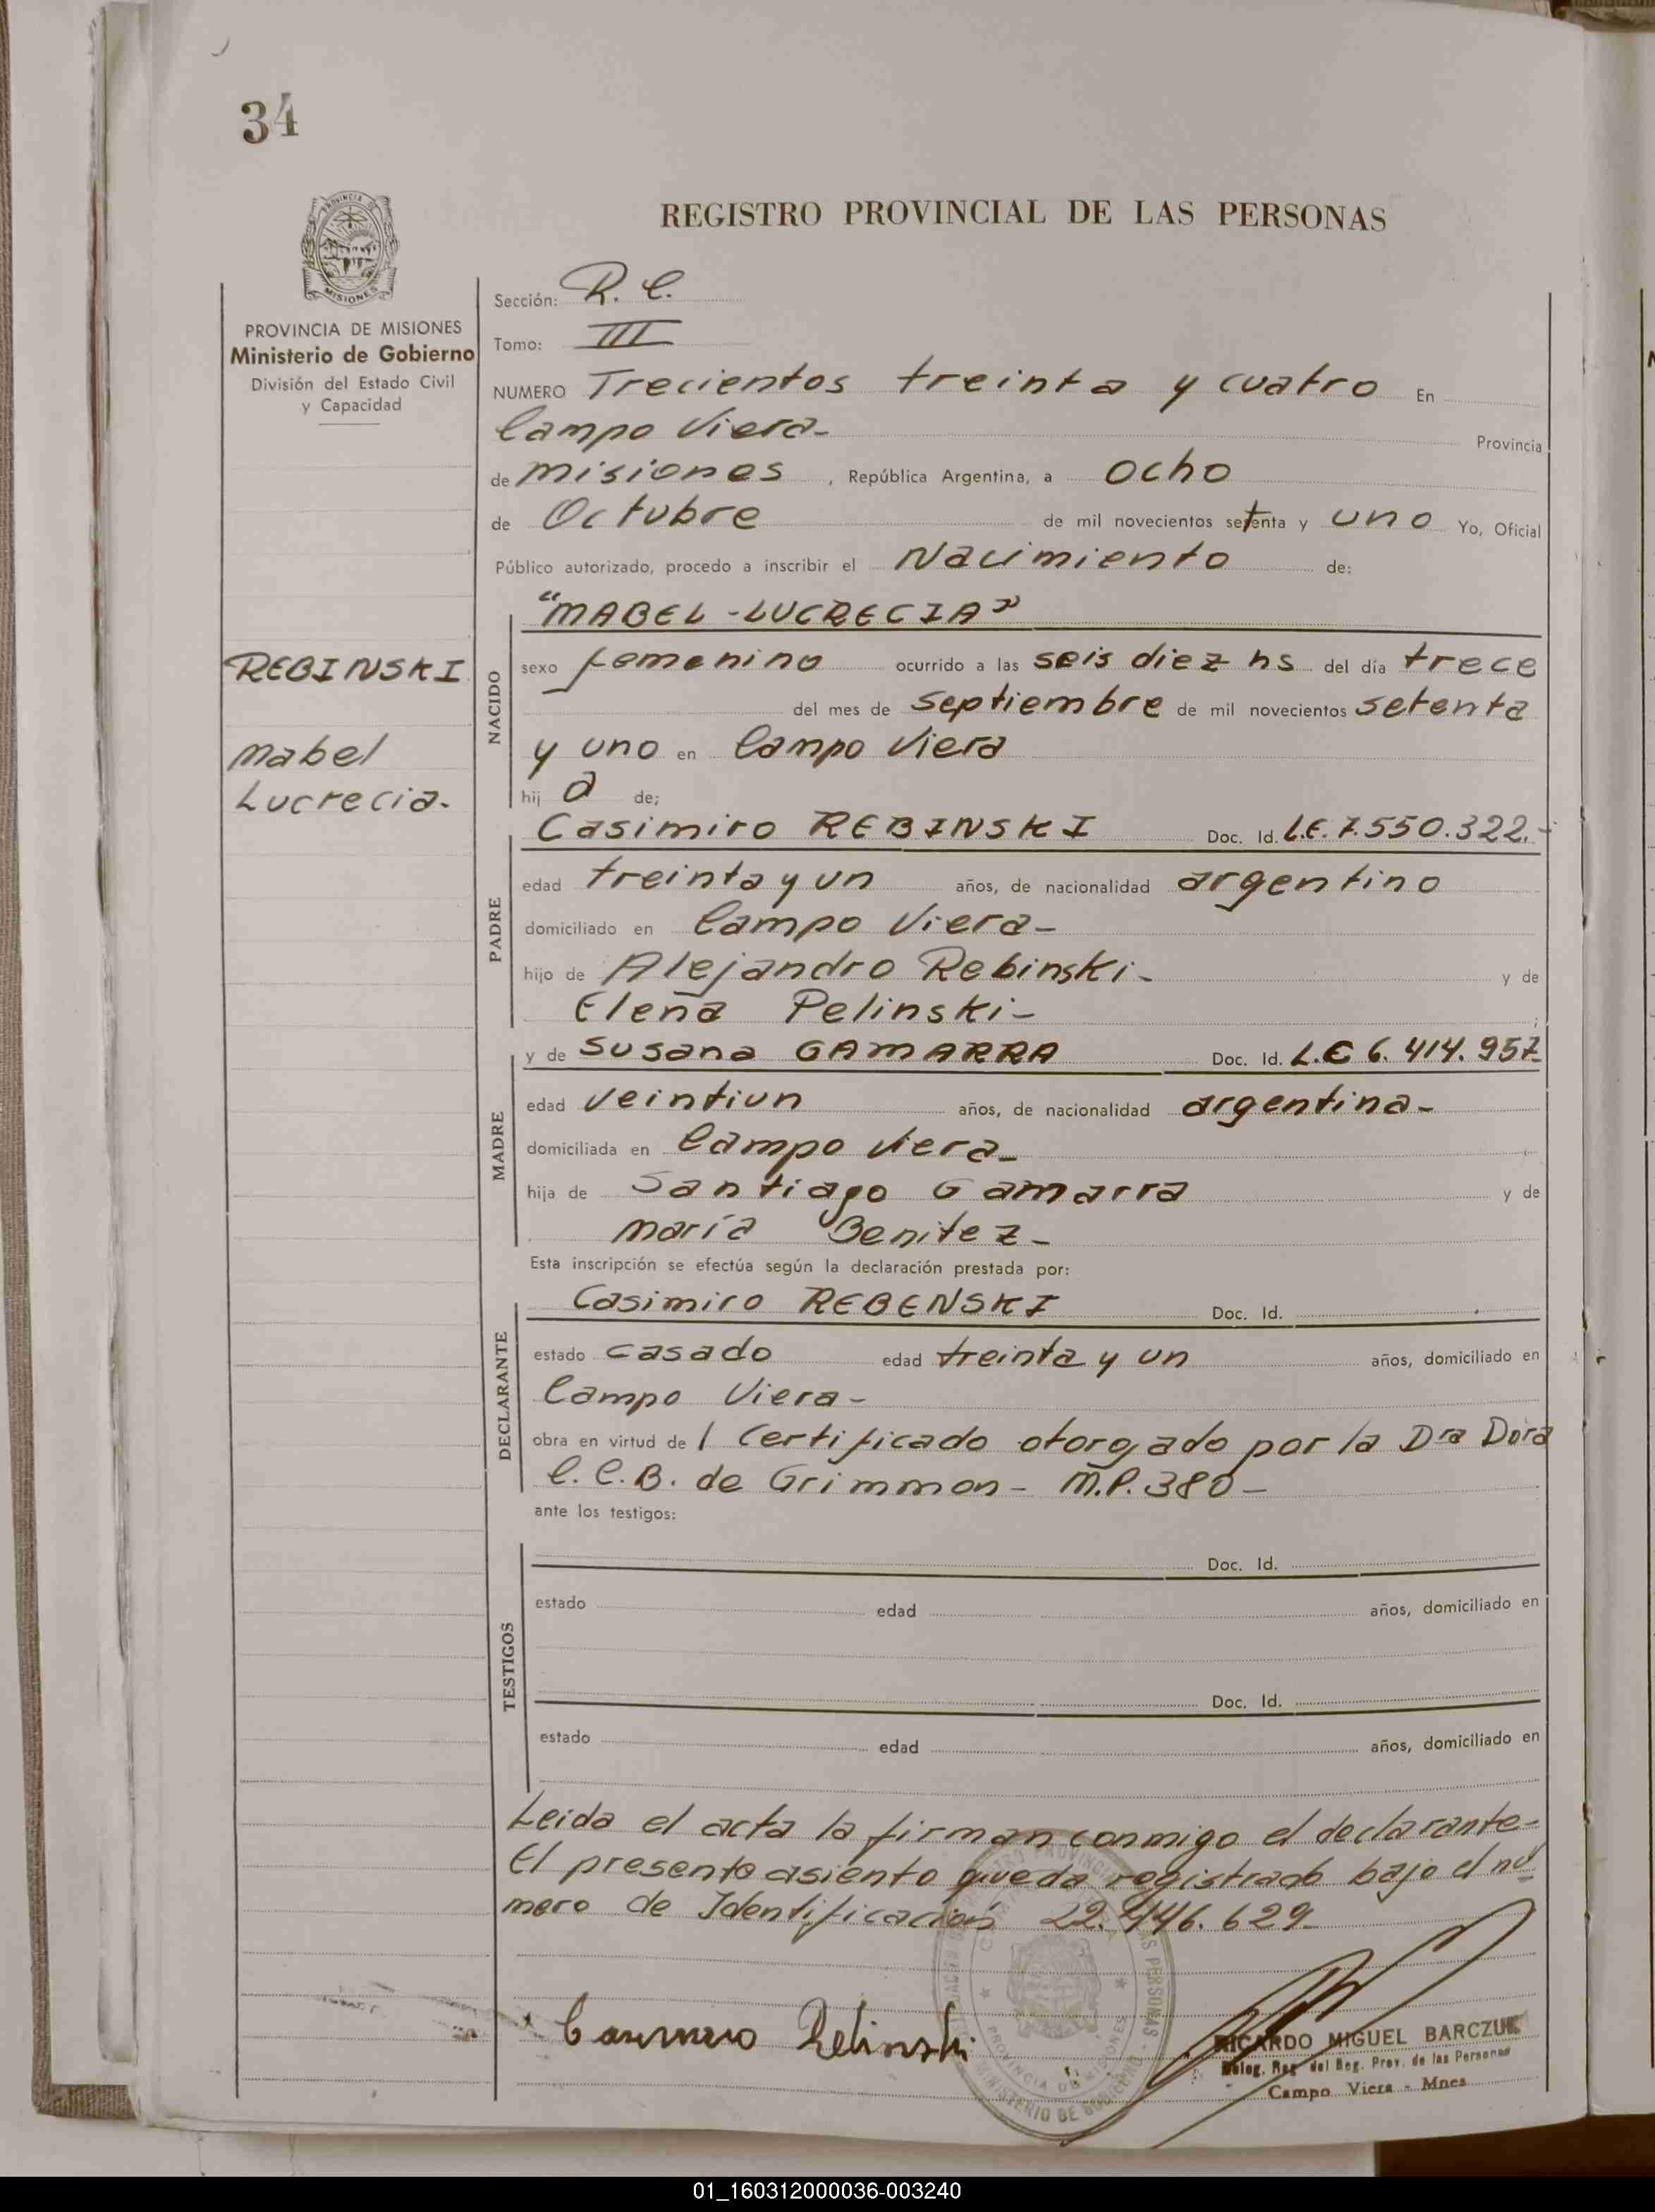 34
PROVINCIA DE MISIONES
Ministerio de Gobierno
División del Estado Civil
y Capacidad
REBINSKI
Mabel
Lucrecia.
REGISTRO PROVINCIAL DE LAS PERSONAS
Sección: R. C.
Tomo: III
NUMERO Trecientos treinta y cuatro En
Campo Viera-
Provincia
de misiones, República Argentina, a ocho
de Octubre de mil novecientos setenta y uno Yo, Oficial
Público autorizado, procedo a inscribir el Nacimiento de:
NACIDO
"MABEL-LUCRECIA"
sexo femenino ocurrido a las seis diez hs del día trece
del mes de septiembre de mil novecientos setenta
y uno en Campo Viera
hij a de;
PADRE
Casimiro REBINSKI Doc. Id. L.E. 7.550.322.-
edad treinta y un años, de nacionalidad argentino
domiciliado en Campo Viera-
hijo de Alejandro Rebinski- y de
Elena Pelinski- ;
MADRE
y de Susana GAMARRA Doc. Id. L.E 6.414.957
edad veintiun años, de nacionalidad argentina-
domiciliada en Campo Viera-
hija de Santiago Gamarra y de
maría Benitez-
Esta inscripción se efectúa según la declaración prestada por:
DECLARANTE
Casimiro REBENSKI Doc. Id.
estado casado edad treinta y un años, domiciliado en
Campo Viera-
obra en virtud de 1 Certificado otorgado por la Dra Dora
C. C. B. de Grimmon- M.P. 380-
ante los testigos:
TESTIGOS
Doc. Id.
estado edad años, domiciliado en
Doc. Id.
estado edad años, domiciliado en
Leida el acta la firman conmigo el declarante-
El presente asiento queda registrado bajo el nú
mero de Identificación 22.446.629-
Casimiro Rebinski
RICARDO MIGUEL BARCZUK
Deleg. Reg. del Reg. Prov. de las Personas
Campo Viera - Mnes
01_160312000036-003240